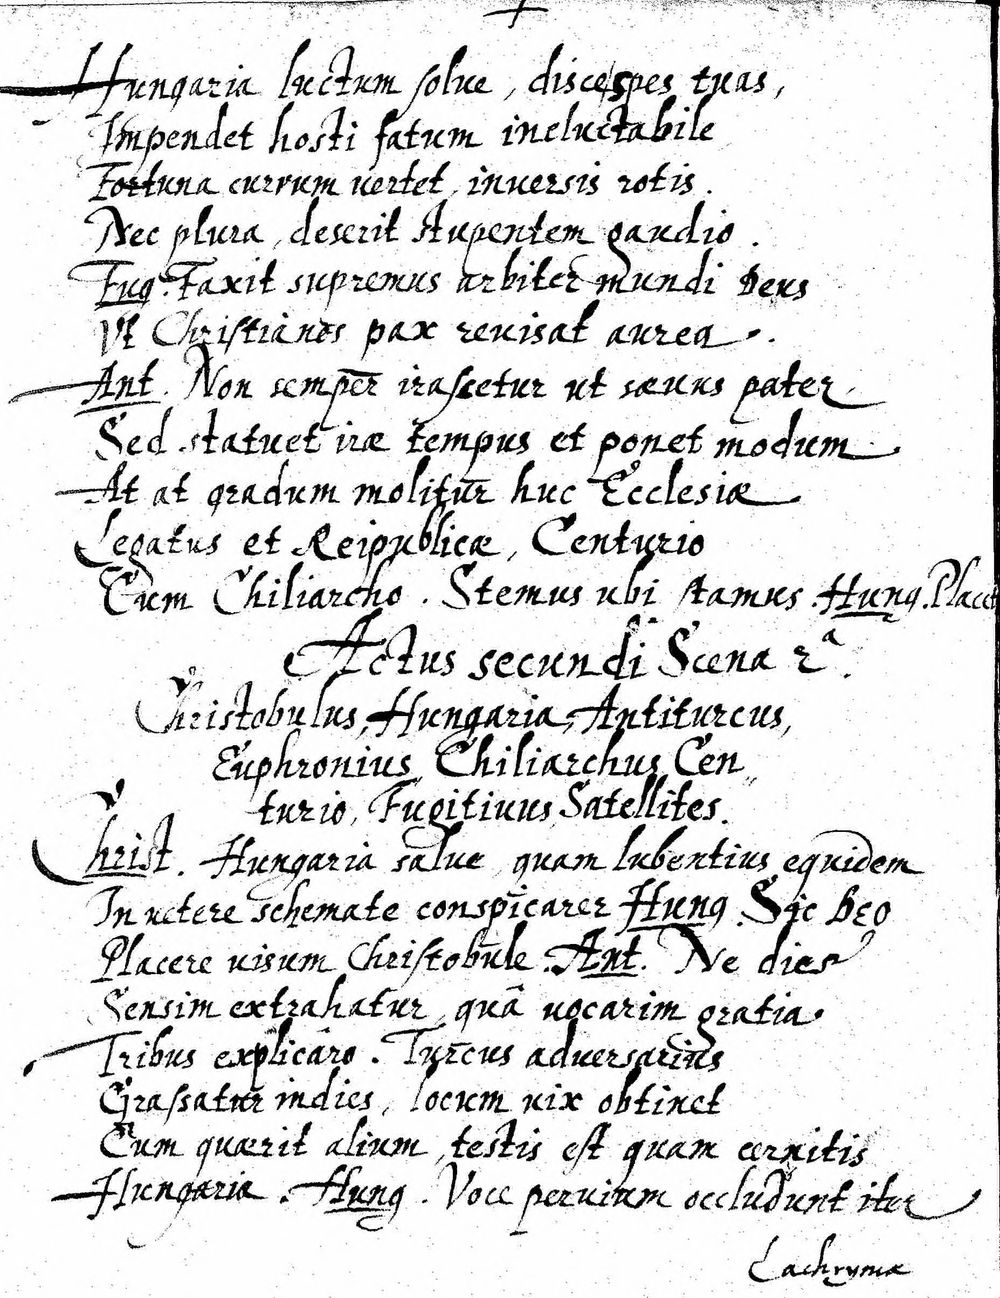 +
Hungaria luctum solue, disce spes tuas,
Impendet hosti fatum ineluctabile
Fortuna currum uertet, inuersis rotis.
Nec plura, deserit stupentem gaudio.
Fug. Faxit supremus arbiter mundi Deus
Ut Christianos pax reuisat aurea.
Ant. Non semper irascetur ut sæuus pater
Sed statuet iræ tempus et ponet modum
At at gradum molitur huc Ecclesiæ
Legatus et Reipublicæ, Centurio
Cum Chiliarcho. Stemus ubi stamus. Hung. Placet
Actus secundi Scena 2ª.
Christobulus, Hungaria, Antiturcus,
Euphronius, Chiliarchus, Cen
turio, Fugitiuus, Satellites.
Christ. Hungaria salue, quam lubentius equidem
In uetere schemate conspicarer Hung. Sic Deo
Placere uisum Christobule. Ant. Ne dies
Sensim extrahatur, quâ uocarim gratia
Tribus explicâro. Turcus aduersarius
Grassatur indies, locum uix obtinet
Cum quærit alium, testis est quam cernitis
Hungaria. Hung. Voce peruium occludunt iter
Lachrymæ